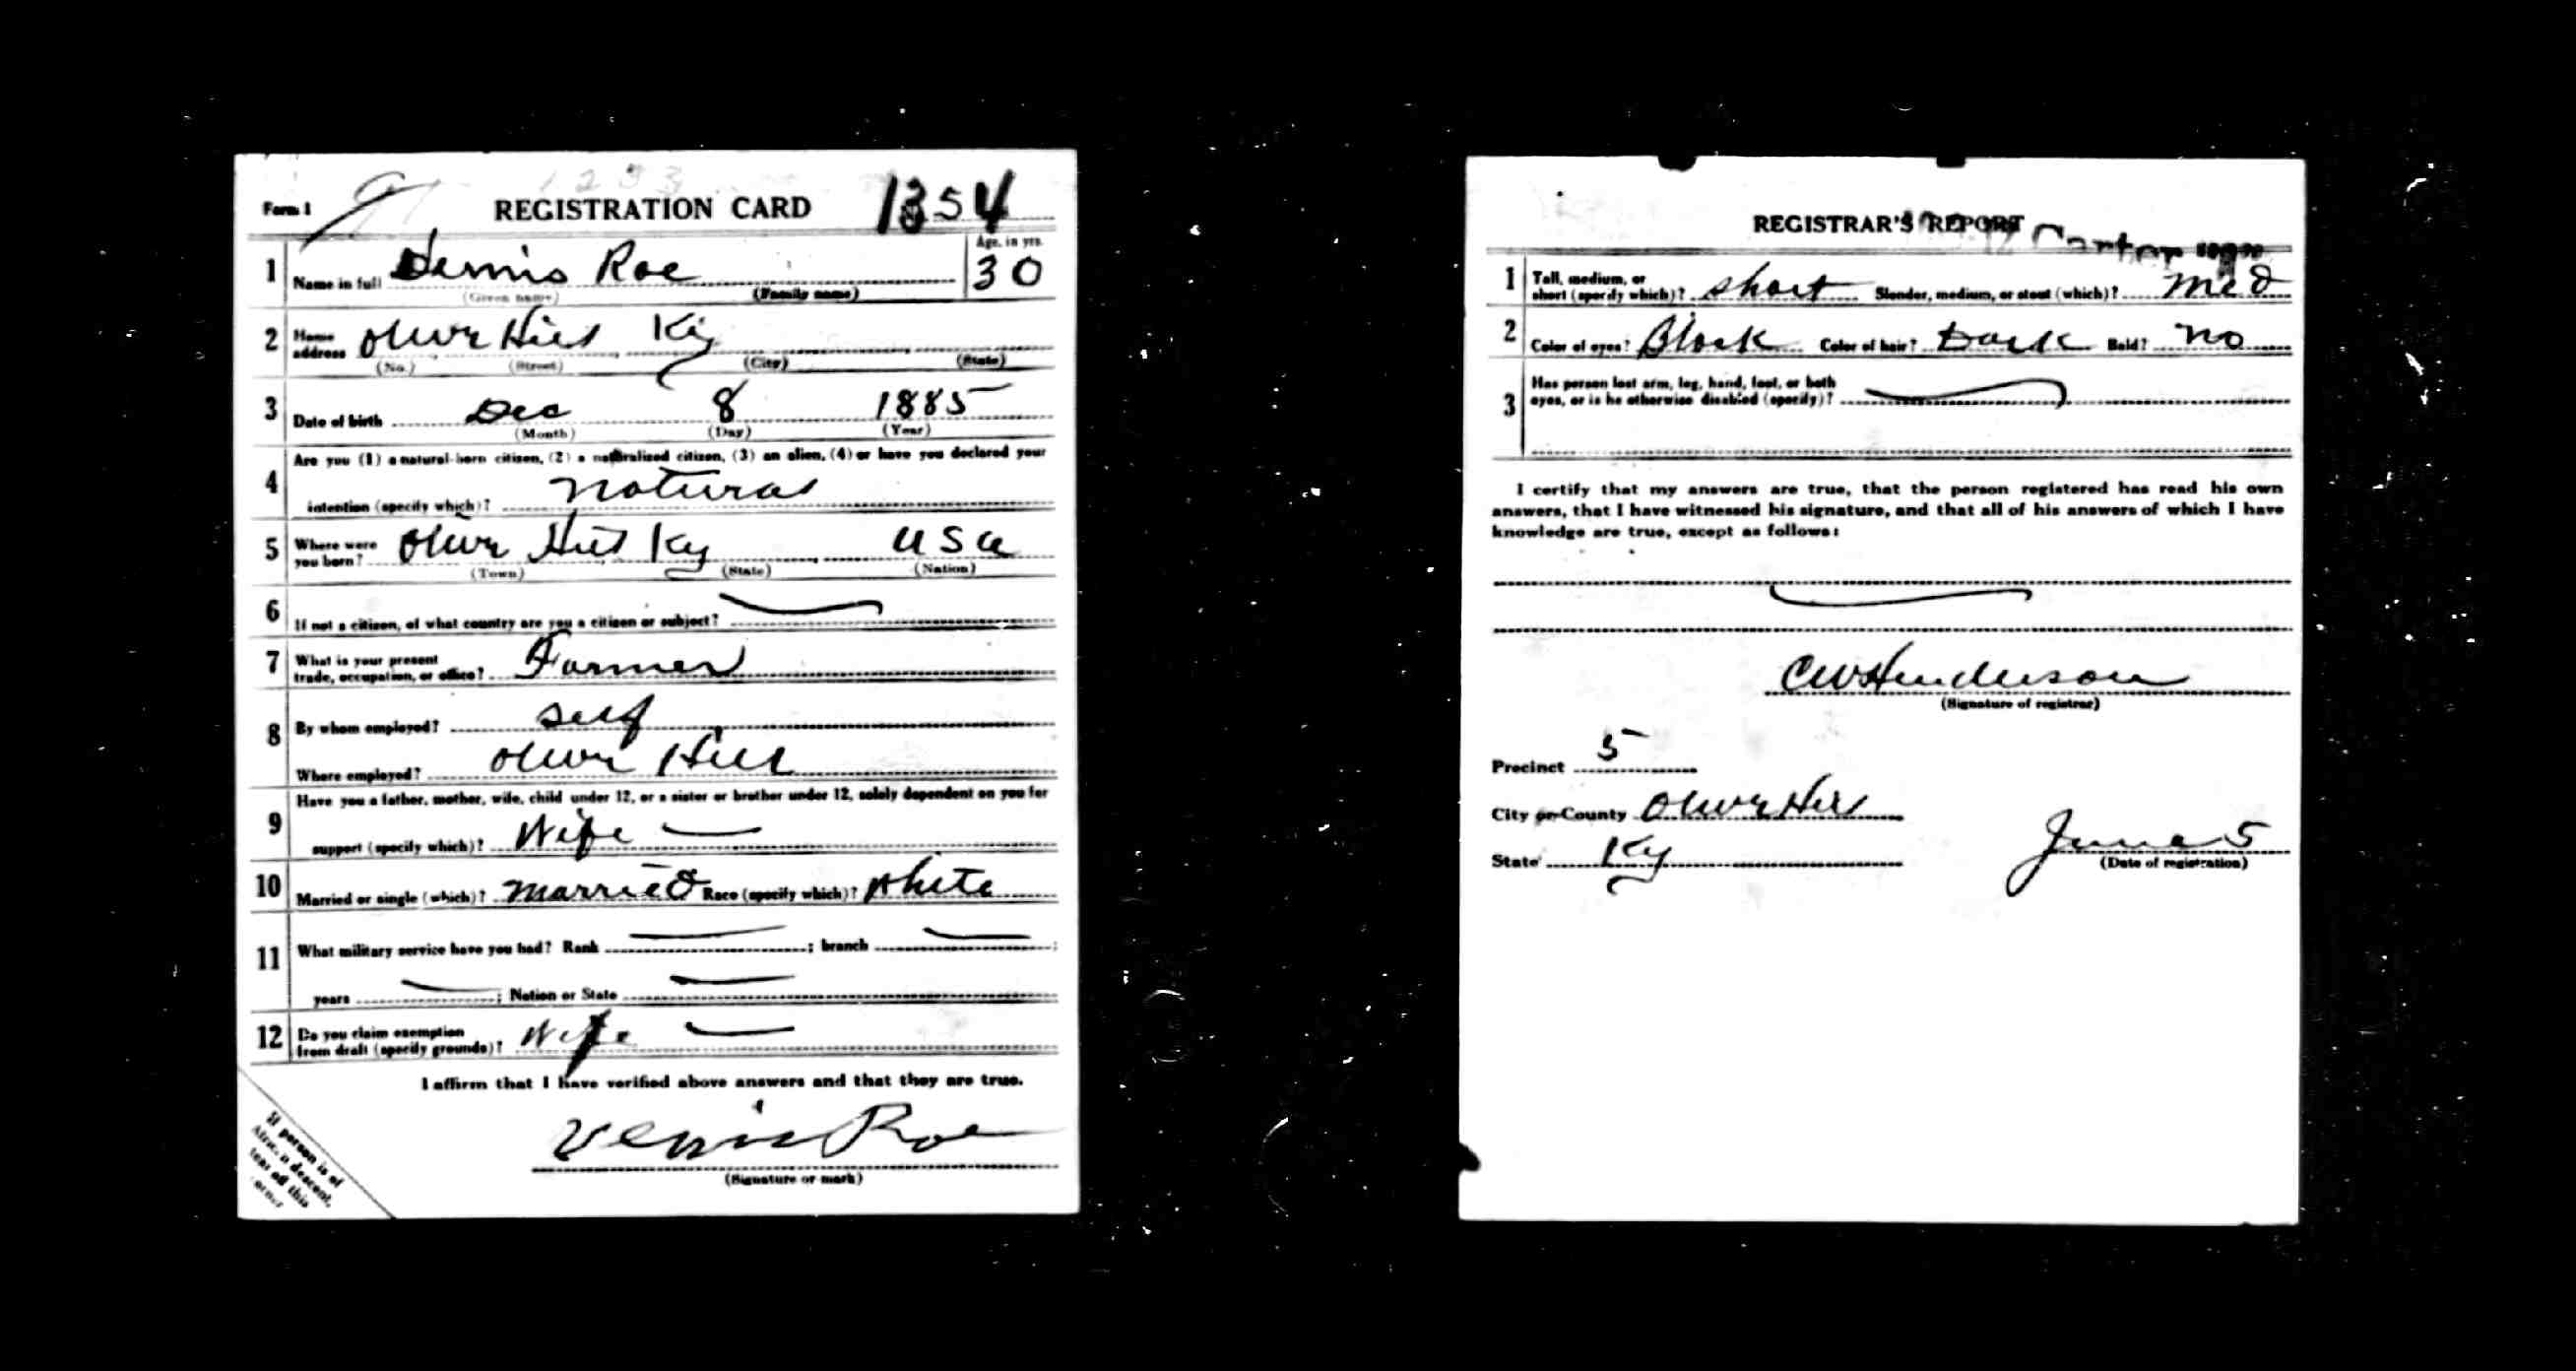 1253
Form 1 REGISTRATION CARD 1354
1 Name in full Dennis Roe Age, in yrs. 30
(Given name) (Family name)
2 Home address Olive Hill Ky
(No.) (Street) (City) (State)
3 Date of birth Dec 8 1885
(Month) (Day) (Year)
4 Are you (1) a natural-born citizen, (2) a naturalized citizen, (3) an alien, (4) or have you declared your
intention (specify which)? natural
5 Where were you born? Olive Hill Ky USA
(Town) (State) (Nation)
6 If not a citizen, of what country are you a citizen or subject?
7 What is your present trade, occupation, or office? Farmer
8 By whom employed? self
Where employed? Olive Hill
9 Have you a father, mother, wife, child under 12, or a sister or brother under 12, solely dependent on you for
support (specify which)? Wife —
10 Married or single (which)? Married Race (specify which)? White
11 What military service have you had? Rank — ; branch — ;
years — ; Nation or State —
12 Do you claim exemption from draft (specify grounds)? Wife —
I affirm that I have verified above answers and that they are true.
Denis Roe
(Signature or mark)
If person is of
African descent,
tear off this
corner
REGISTRAR'S REPORT
Carter
1 Tall, medium, or short (specify which)? short Slender, medium, or stout (which)? Med
2 Color of eyes? Black Color of hair? Dark Bald? No
3 Has person lost arm, leg, hand, foot, or both
eyes, or is he otherwise disabled (specify)?
I certify that my answers are true, that the person registered has read his own
answers, that I have witnessed his signature, and that all of his answers of which I have
knowledge are true, except as follows:
CW Henderson
(Signature of registrar)
Precinct 5
City or County Olive Hill
State Ky
June 5
(Date of registration)